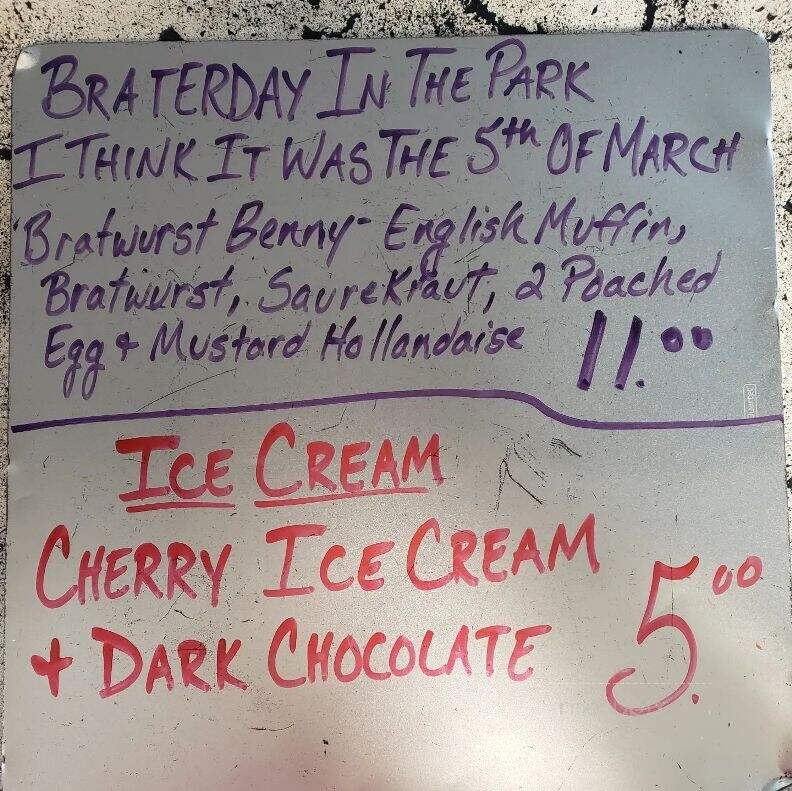 BRATERDAY IN THE PARK
I THINK IT WAS THE 5th OF MARCH
Bratwurst Benny - English Muffin,
Bratwurst, SaureKraut, 2 Poached
Egg + Mustard Hollandaise 11.00
ICE CREAM
CHERRY ICE CREAM
+ DARK CHOCOLATE 5.00